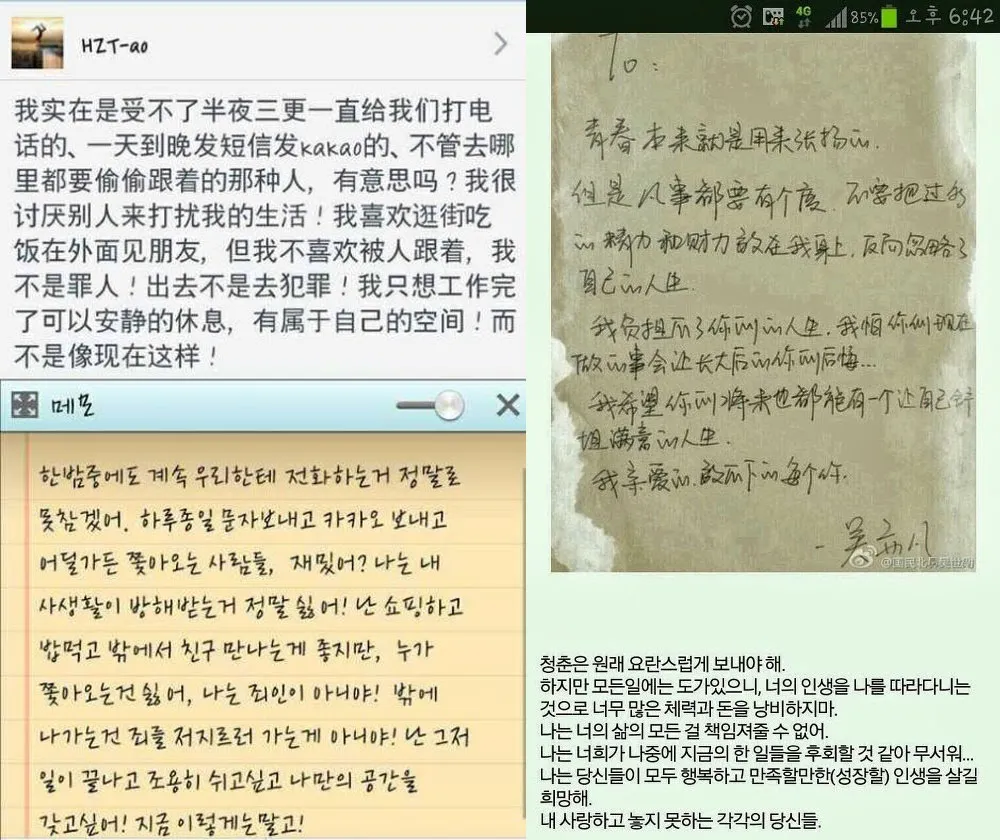 HZT-ao
我实在是受不了半夜三更一直给我们打电
话的、一天到晚发短信发kakao的、不管去哪
里都要偷偷跟着的那种人，有意思吗？我很
讨厌别人来打扰我的生活！我喜欢逛街吃
饭在外面见朋友，但我不喜欢被人跟着，我
不是罪人！出去不是去犯罪！我只想工作完
了可以安静的休息，有属于自己的空间！而
不是像现在这样！
메모
한밤중에도 계속 우리한테 전화하는거 정말로
못참겠어. 하루종일 문자보내고 카카오 보내고
어딜가든 쫓아오는 사람들, 재밌어? 나는 내
사생활이 방해받는거 정말 싫어! 난 쇼핑하고
밥먹고 밖에서 친구 만나는게 좋지만, 누가
쫓아오는건 싫어, 나는 죄인이 아니야! 밖에
나가는건 죄를 저지르러 가는게 아니야! 난 그저
일이 끝나고 조용히 쉬고싶고 나만의 공간을
갖고싶어! 지금 이렇게는말고!
4G 85% 오후 6:42
To:
青春本来就是用来张扬的.
但是凡事都要有个度. 不要把过多
的精力和财力放在我身上, 反而忽略了
自己的人生.
我负担不了你们的人生. 我怕你们现在
做的事会让长大后的你们后悔...
我希望你们将来也都能有一个让自己舒
坦满意的人生.
我亲爱的.放不下的每个你.
- 吴亦凡
청춘은 원래 요란스럽게 보내야 해.
하지만 모든일에는 도가있으니, 너의 인생을 나를 따라다니는
것으로 너무 많은 체력과 돈을 낭비하지마.
나는 너의 삶의 모든 걸 책임져줄 수 없어.
나는 너희가 나중에 지금의 한 일들을 후회할 것 같아 무서워...
나는 당신들이 모두 행복하고 만족할만한(성장할) 인생을 살길
희망해.
내 사랑하고 놓지 못하는 각각의 당신들.